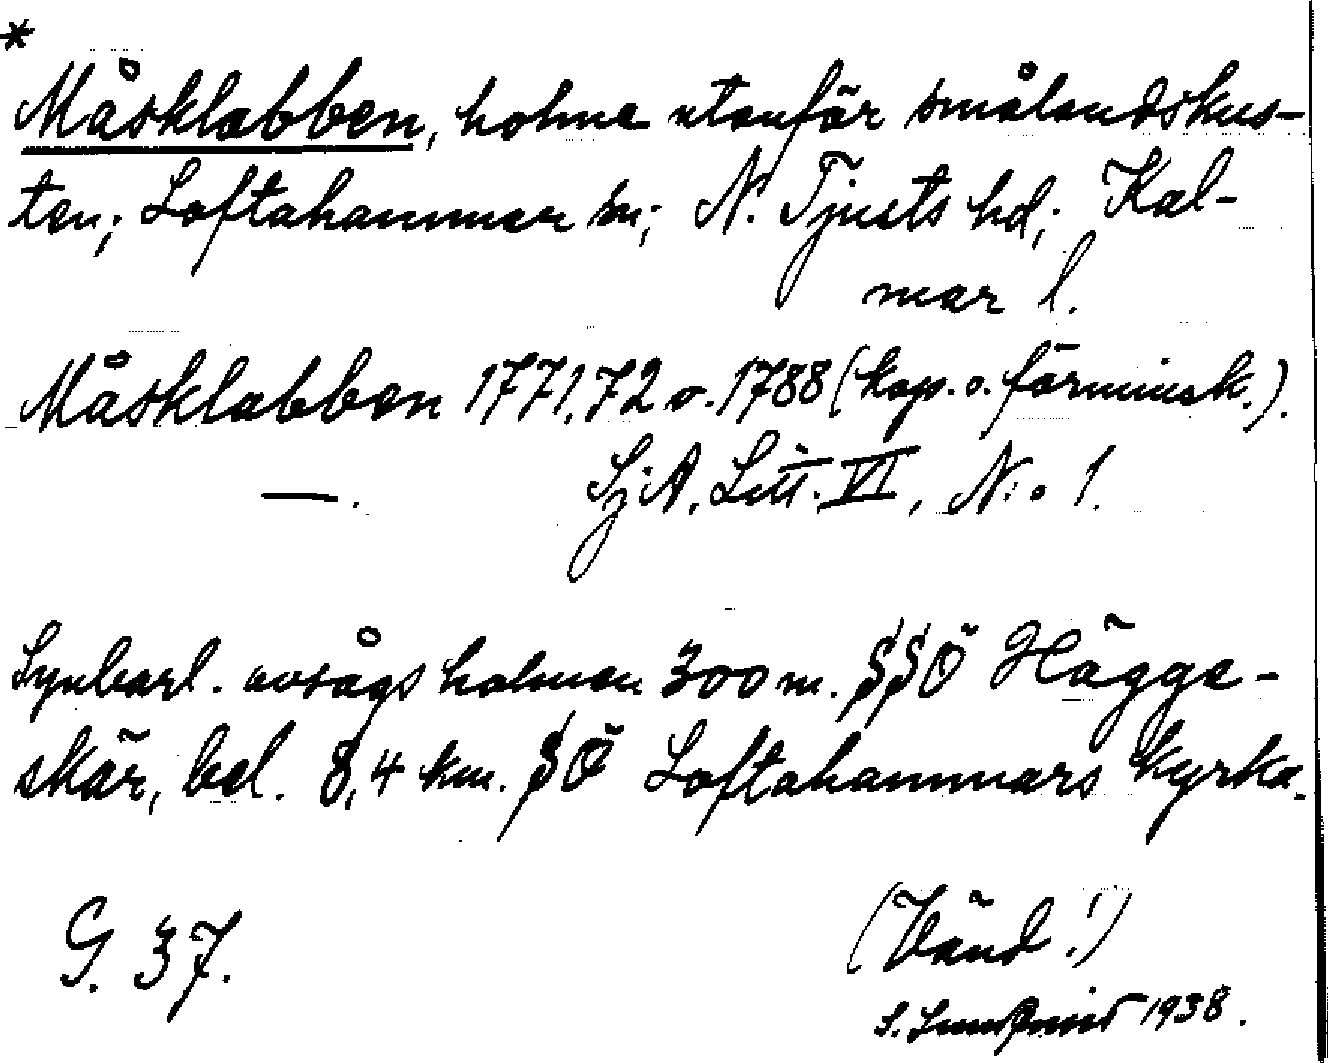 *
Måsklabben, holme utanför smålandskus-
ten; Loftahammar sn; N. Tjusts hd; Kal-
mar l.
Måsklabben 1771,72 o. 1788 (kop. o. förminsk.).
—. SjA. Litt. VI, N:o 1.
Synbarl. avsågs holmen 300 m. SSÖ Hägge-
skär, bel. 8,4 km. SÖ Loftahammars kyrka.
G. 37. (Vänd!)
S. Lundqvist 1938.